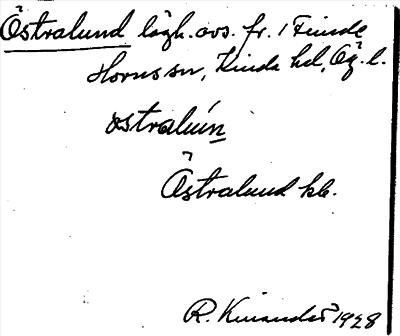 Östralund lägh. avs. fr. 1 Finde
Horns sn, Kinda hd, Ög. l.
östralún
Östralund kb.
R. Kinander 1928